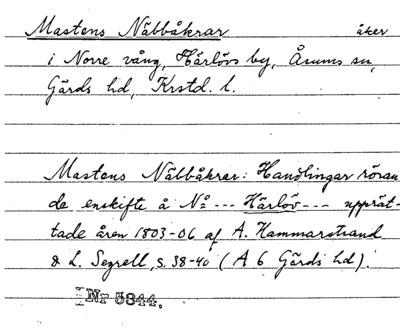 Mastens Näbbåkrar åker
i Norre vång, Härlövs by, Åsums sn,
Gärds hd, Krstd. l.
Mastens Näbbåkrar: Handlingar röran
de enskifte å No --- Härlöv --- upprät-
tade åren 1803-06 af A. Hammarstrand
& L. Segrell, s. 38-40 (A 6 Gärds hd).
Nr 5844.